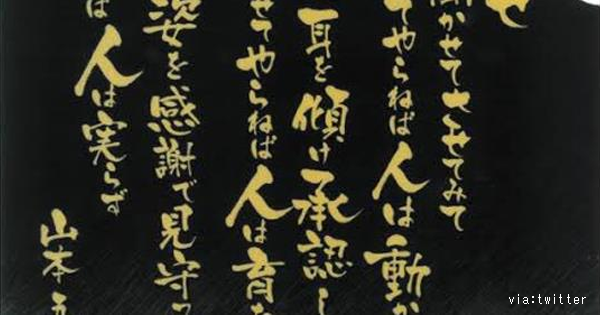 せ
聞かせてさせてみて
てやらねば人は動か
耳を傾け承認し
せてやらねば人は育た
姿を感謝で見守っ
ば人は実らず
山本五
via:twitter